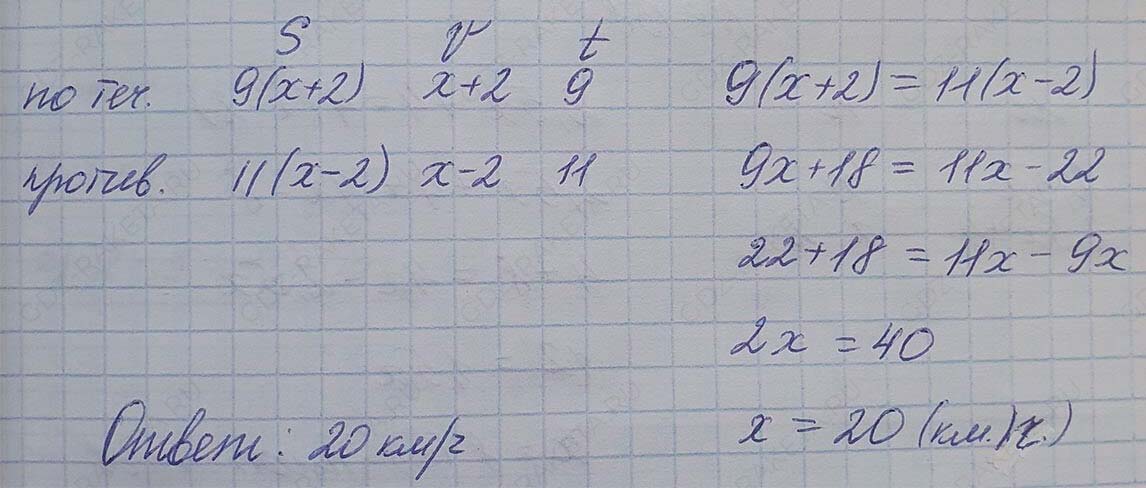 S v t
по теч. 9(x+2) x+2 9 9(x+2) = 11(x-2)
против. 11(x-2) x-2 11 9x+18 = 11x-22
22+18 = 11x-9x
2x = 40
Ответ: 20 км/ч x = 20 (км./ч.)